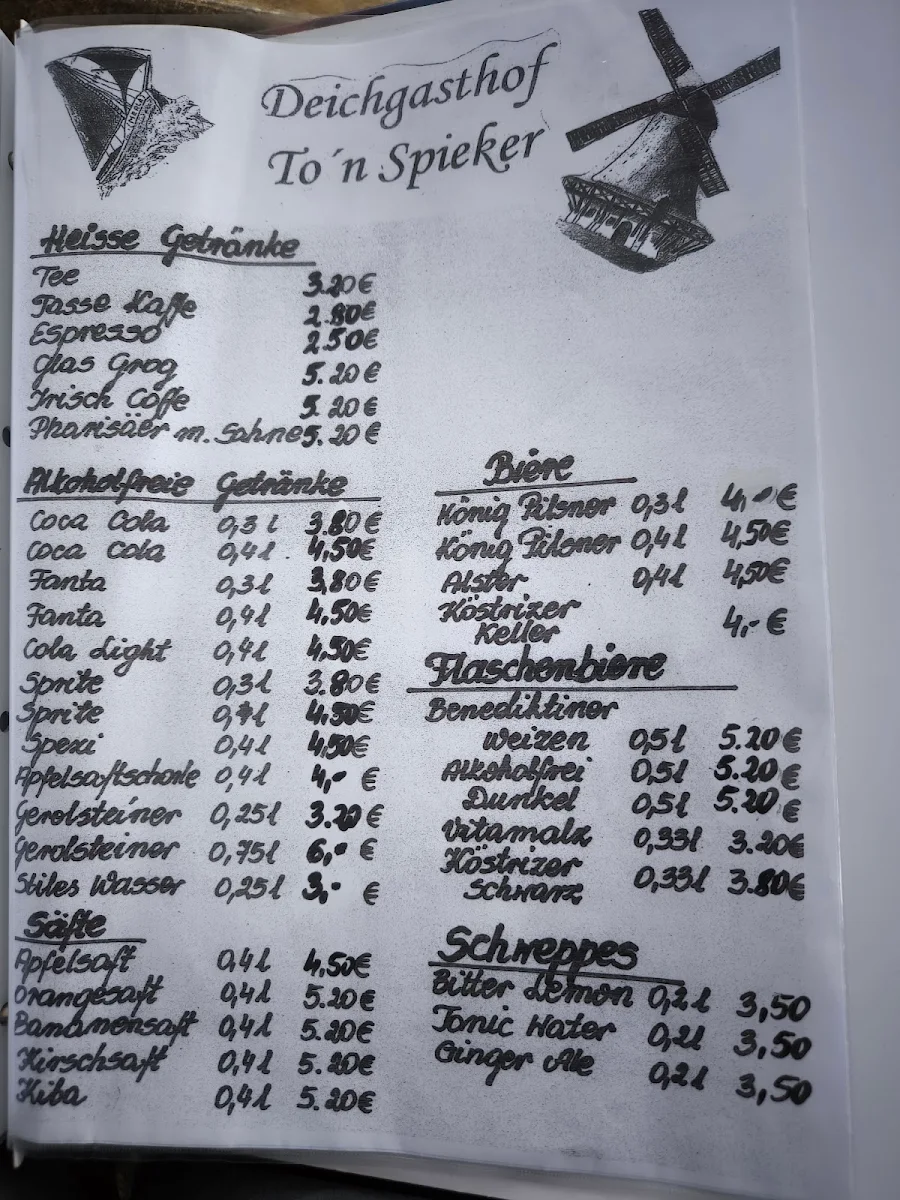 Deichgasthof
To´n Spieker
Heisse Getränke
Tee 3.20€
Tasse Kaffe 2.80€
Espresso 2.50€
Glas Grog 5.20€
Irisch Coffe 5.20€
Pharisäer m. Sahne 5.20€
Alkoholfreie Getränke
Coca Cola 0,3l 3.80€
Coca Cola 0,4l 4,50€
Fanta 0,3l 3,80€
Fanta 0,4l 4,50€
Cola Light 0,4l 4,50€
Sprite 0,3l 3.80€
Sprite 0,4l 4,50€
Spezi 0,4l 4,50€
Apfelsaftschorle 0,4l 4,- €
Gerolsteiner 0,25l 3.20€
Gerolsteiner 0,75l 6,- €
Stiles Wasser 0,25l 3,- €
Säfte
Apfelsaft 0,4l 4,50€
Orangesaft 0,4l 5.20€
Bananensaft 0,4l 5.20€
Kirschsaft 0,4l 5.20€
Kiba 0,4l 5.20€
Biere
König Pilsner 0,3l 4,-€
König Pilsner 0,4l 4,50€
Alster 0,4l 4,50€
Köstrizer
Keller 4,-€
Flaschenbiere
Benediktiner
Weizen 0,5l 5.20€
Alkoholfrei 0,5l 5.20€
Dunkel 0,5l 5.20€
Vitamalz 0,33l 3.20€
Köstrizer
Schwarz 0,33l 3.80€
Schweppes
Bitter Lemon 0,2l 3,50
Tonic Water 0,2l 3,50
Ginger Ale 0,2l 3,50